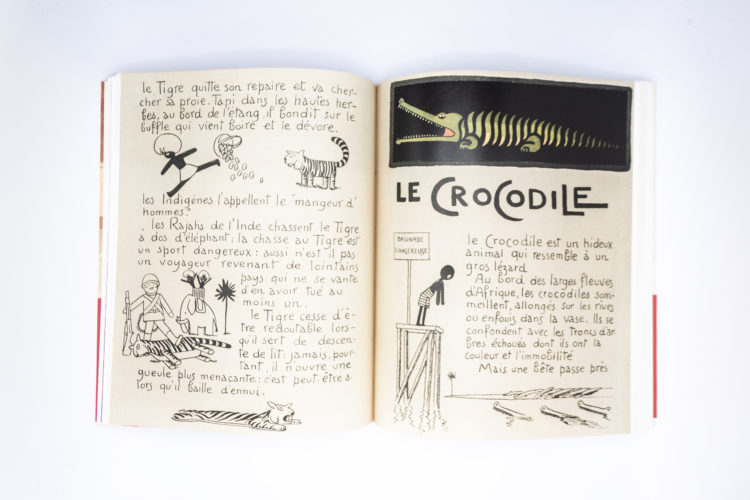 le Tigre quitte son repaire et va cher-
cher sa proie. Tapi dans les hautes her-
bes, au bord de l'étang, il bondit sur le
buffle qui vient boire et le dévore.
les Indigènes l'appellent le "mangeur d'
hommes".
les Rajahs de l'Inde chassent le Tigre
à dos d'éléphant: la chasse au Tigre est
un sport dangereux: aussi n'est il pas
un voyageur revenant de lointains
pays qui ne se vante
d'en avoir tué au
moins un.
le Tigre cesse d'ê-
tre redoutable lors-
qu'il sert de descen-
te de lit: jamais, pour-
tant, il n'ouvre une
gueule plus menaçante: c'est peut-être a-
lors qu'il baille d'ennui.
LE CROCODILE
BAIGNADE
DANGEREUSE
le Crocodile est un hideux
animal qui ressemble à un
gros lézard.
Au bord des larges fleuves
d'Afrique, les crocodiles som-
meillent, allongés sur les rives
ou enfouis dans la vase. Ils se
confondent avec les troncs d'ar
bres échoués dont ils ont la
couleur et l'immobilité
Mais une bête passe près